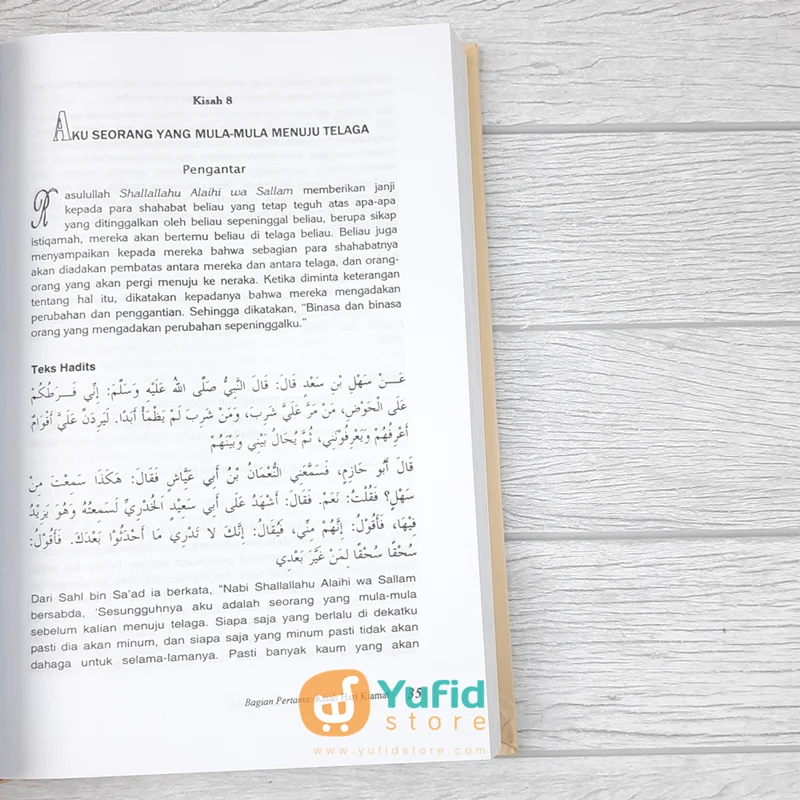 Kisah 8
AKU SEORANG YANG MULA-MULA MENUJU TELAGA
Pengantar
Rasulullah Shallallahu Alaihi wa Sallam memberikan janji
kepada para shahabat beliau yang tetap teguh atas apa-apa
yang ditinggalkan oleh beliau sepeninggal beliau, berupa sikap
istiqamah, mereka akan bertemu beliau di telaga beliau. Beliau juga
menyampaikan kepada mereka bahwa sebagian para shahabatnya
akan diadakan pembatas antara mereka dan antara telaga, dan orang-
orang yang akan pergi menuju ke neraka. Ketika diminta keterangan
tentang hal itu, dikatakan kepadanya bahwa mereka mengadakan
perubahan dan penggantian. Sehingga dikatakan, "Binasa dan binasa
orang yang mengadakan perubahan sepeninggalku."
Teks Hadits
عَــنْ سَهْلِ بْنِ سَعْدٍ قَالَ: قَالَ النَّبِيُّ صَلَّى اللهُ عَلَيْهِ وَسَلَّمَ: إِنِّي فَــرَطُكُمْ
عَلَى الْحَوْضِ، مَنْ مَرَّ عَلَيَّ شَرِبَ، وَمَنْ شَرِبَ لَمْ يَظْمَأْ أَبَدًا. لَيَرِدَنَّ عَلَيَّ أَقْوَامٌ
أَعْرِفُهُمْ وَيَعْرِفُوْنِي، ثُمَّ يُحَالُ بَيْنِي وَبَيْنَهُمْ
قَالَ أَبُو حَازِمٍ، فَسَمَّعَنِي النُّعْمَانُ بْنُ أَبِي عَيَّاشٍ فَقَالَ: هَكَذَا سَمِعْتَ مِنْ
سَهْلٍ؟ فَقُلْتُ: نَعَمْ. فَقَالَ: أَشْهَدُ عَلَى أَبِي سَعِيْدٍ الْخُدْرِيِّ لَسَمِعْتُهُ وَهُوَ يَزِيْدُ
فِيْهَا، فَأَقُوْلُ: إِنَّهُمْ مِنِّي، فَيُقَالُ: إِنَّكَ لَا تَدْرِي مَا أَحْدَثُوْا بَعْدَكَ. فَأَقُوْلُ:
سُحْقًا سُحْقًا لِمَنْ غَيَّرَ بَعْدِي
Dari Sahl bin Sa'ad ia berkata, "Nabi Shallallahu Alaihi wa Sallam
bersabda, 'Sesungguhnya aku adalah seorang yang mula-mula
sebelum kalian menuju telaga. Siapa saja yang berlalu di dekatku
pasti dia akan minum, dan siapa saja yang minum pasti tidak akan
dahaga untuk selama-lamanya. Pasti banyak kaum yang akan
Bagian Pertama: Kisah Hari Kiamat 35
Yufid
store
www.yufidstore.com